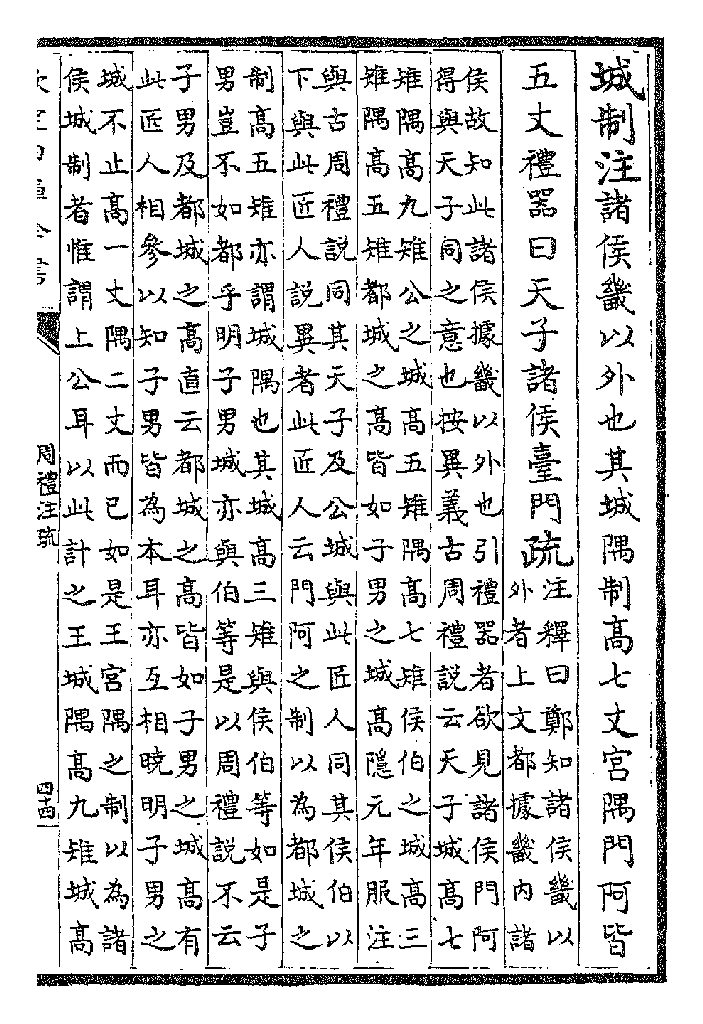 城制注諸侯畿以外也其城隅制高七丈宮隅門阿皆
五丈禮器曰天子諸侯臺門疏
注釋曰鄭知諸侯畿以
外者上文都據畿内諸
侯故知此諸侯據畿以外也引禮器者欲見諸侯門阿
得與天子同之意也按異義古周禮説云天子城高七
雉隅高九雉公之城高五雉隅高七雉侯伯之城高三
雉隅高五雉都城之高皆如子男之城高隱元年服注
與古周禮説同其天子及公城與此匠人同其侯伯以
下與此匠人説異者此匠人云門阿之制以為都城之
制高五雉亦謂城隅也其城高三雉與侯伯等如是子
男豈不如都乎明子男城亦與伯等是以周禮說不云
子男及都城之高直云都城之高皆如子男之城高有
此匠人相參以知子男皆為本耳亦互相曉明子男之
城不止高一丈隅二丈而已如是王宮隅之制以為諸
侯城制者惟謂上公耳以此計之王城隅高九雉城高
周禮注疏